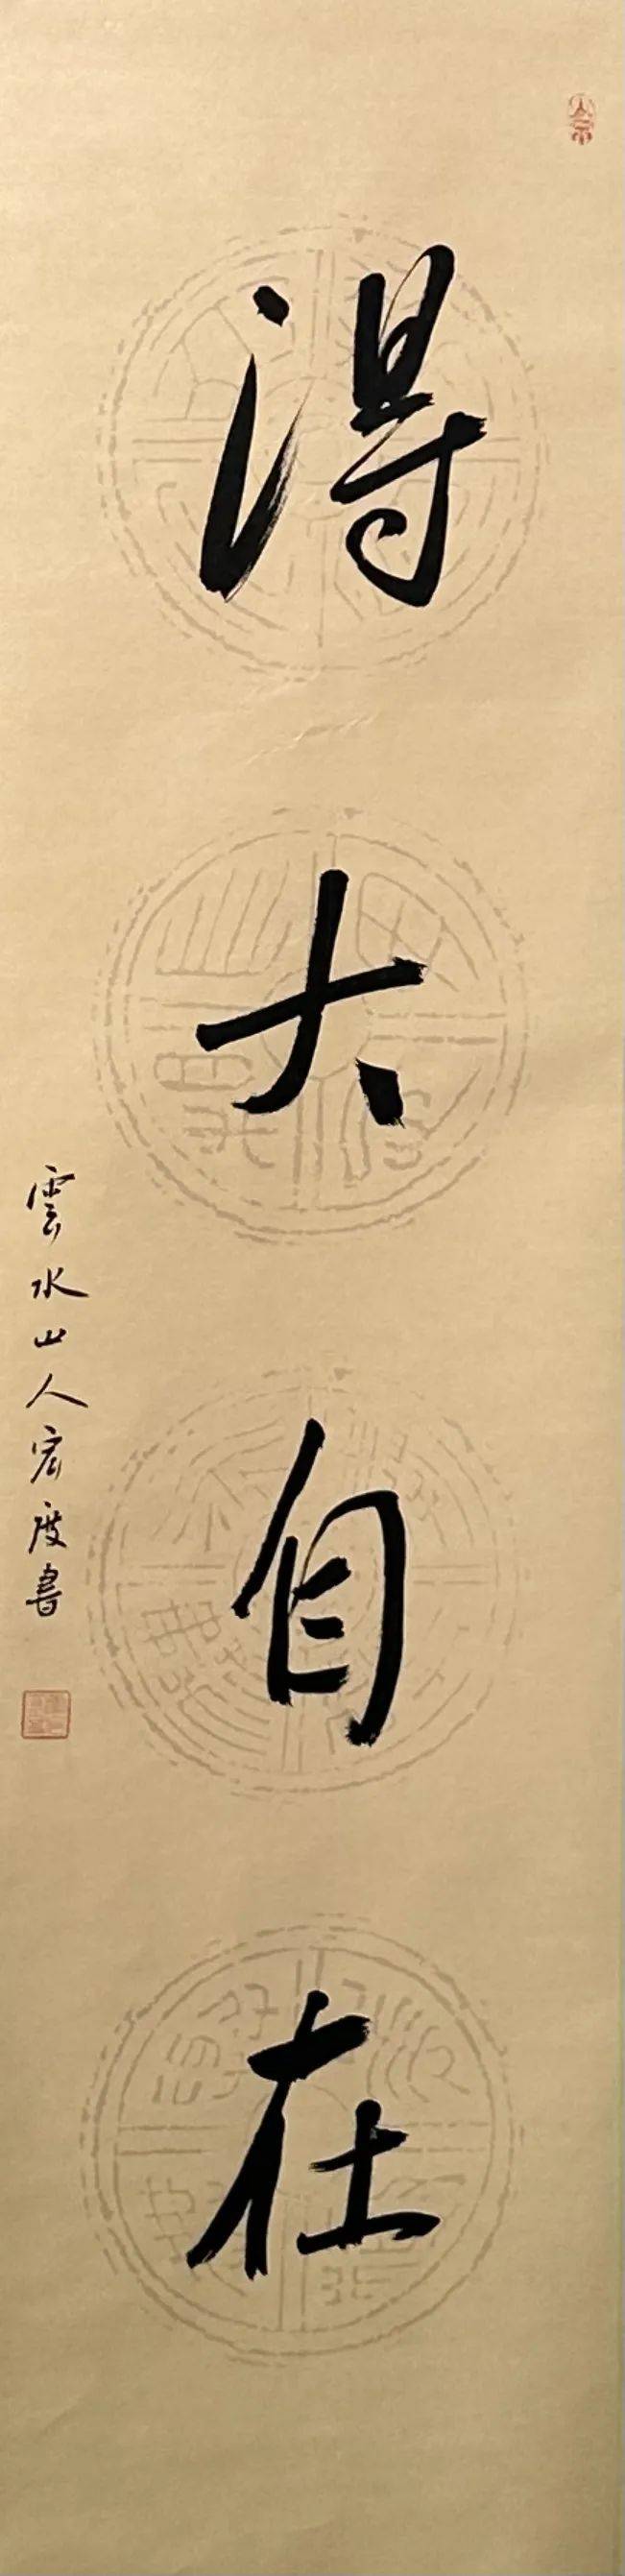 得大自在
雲水山人宏度書